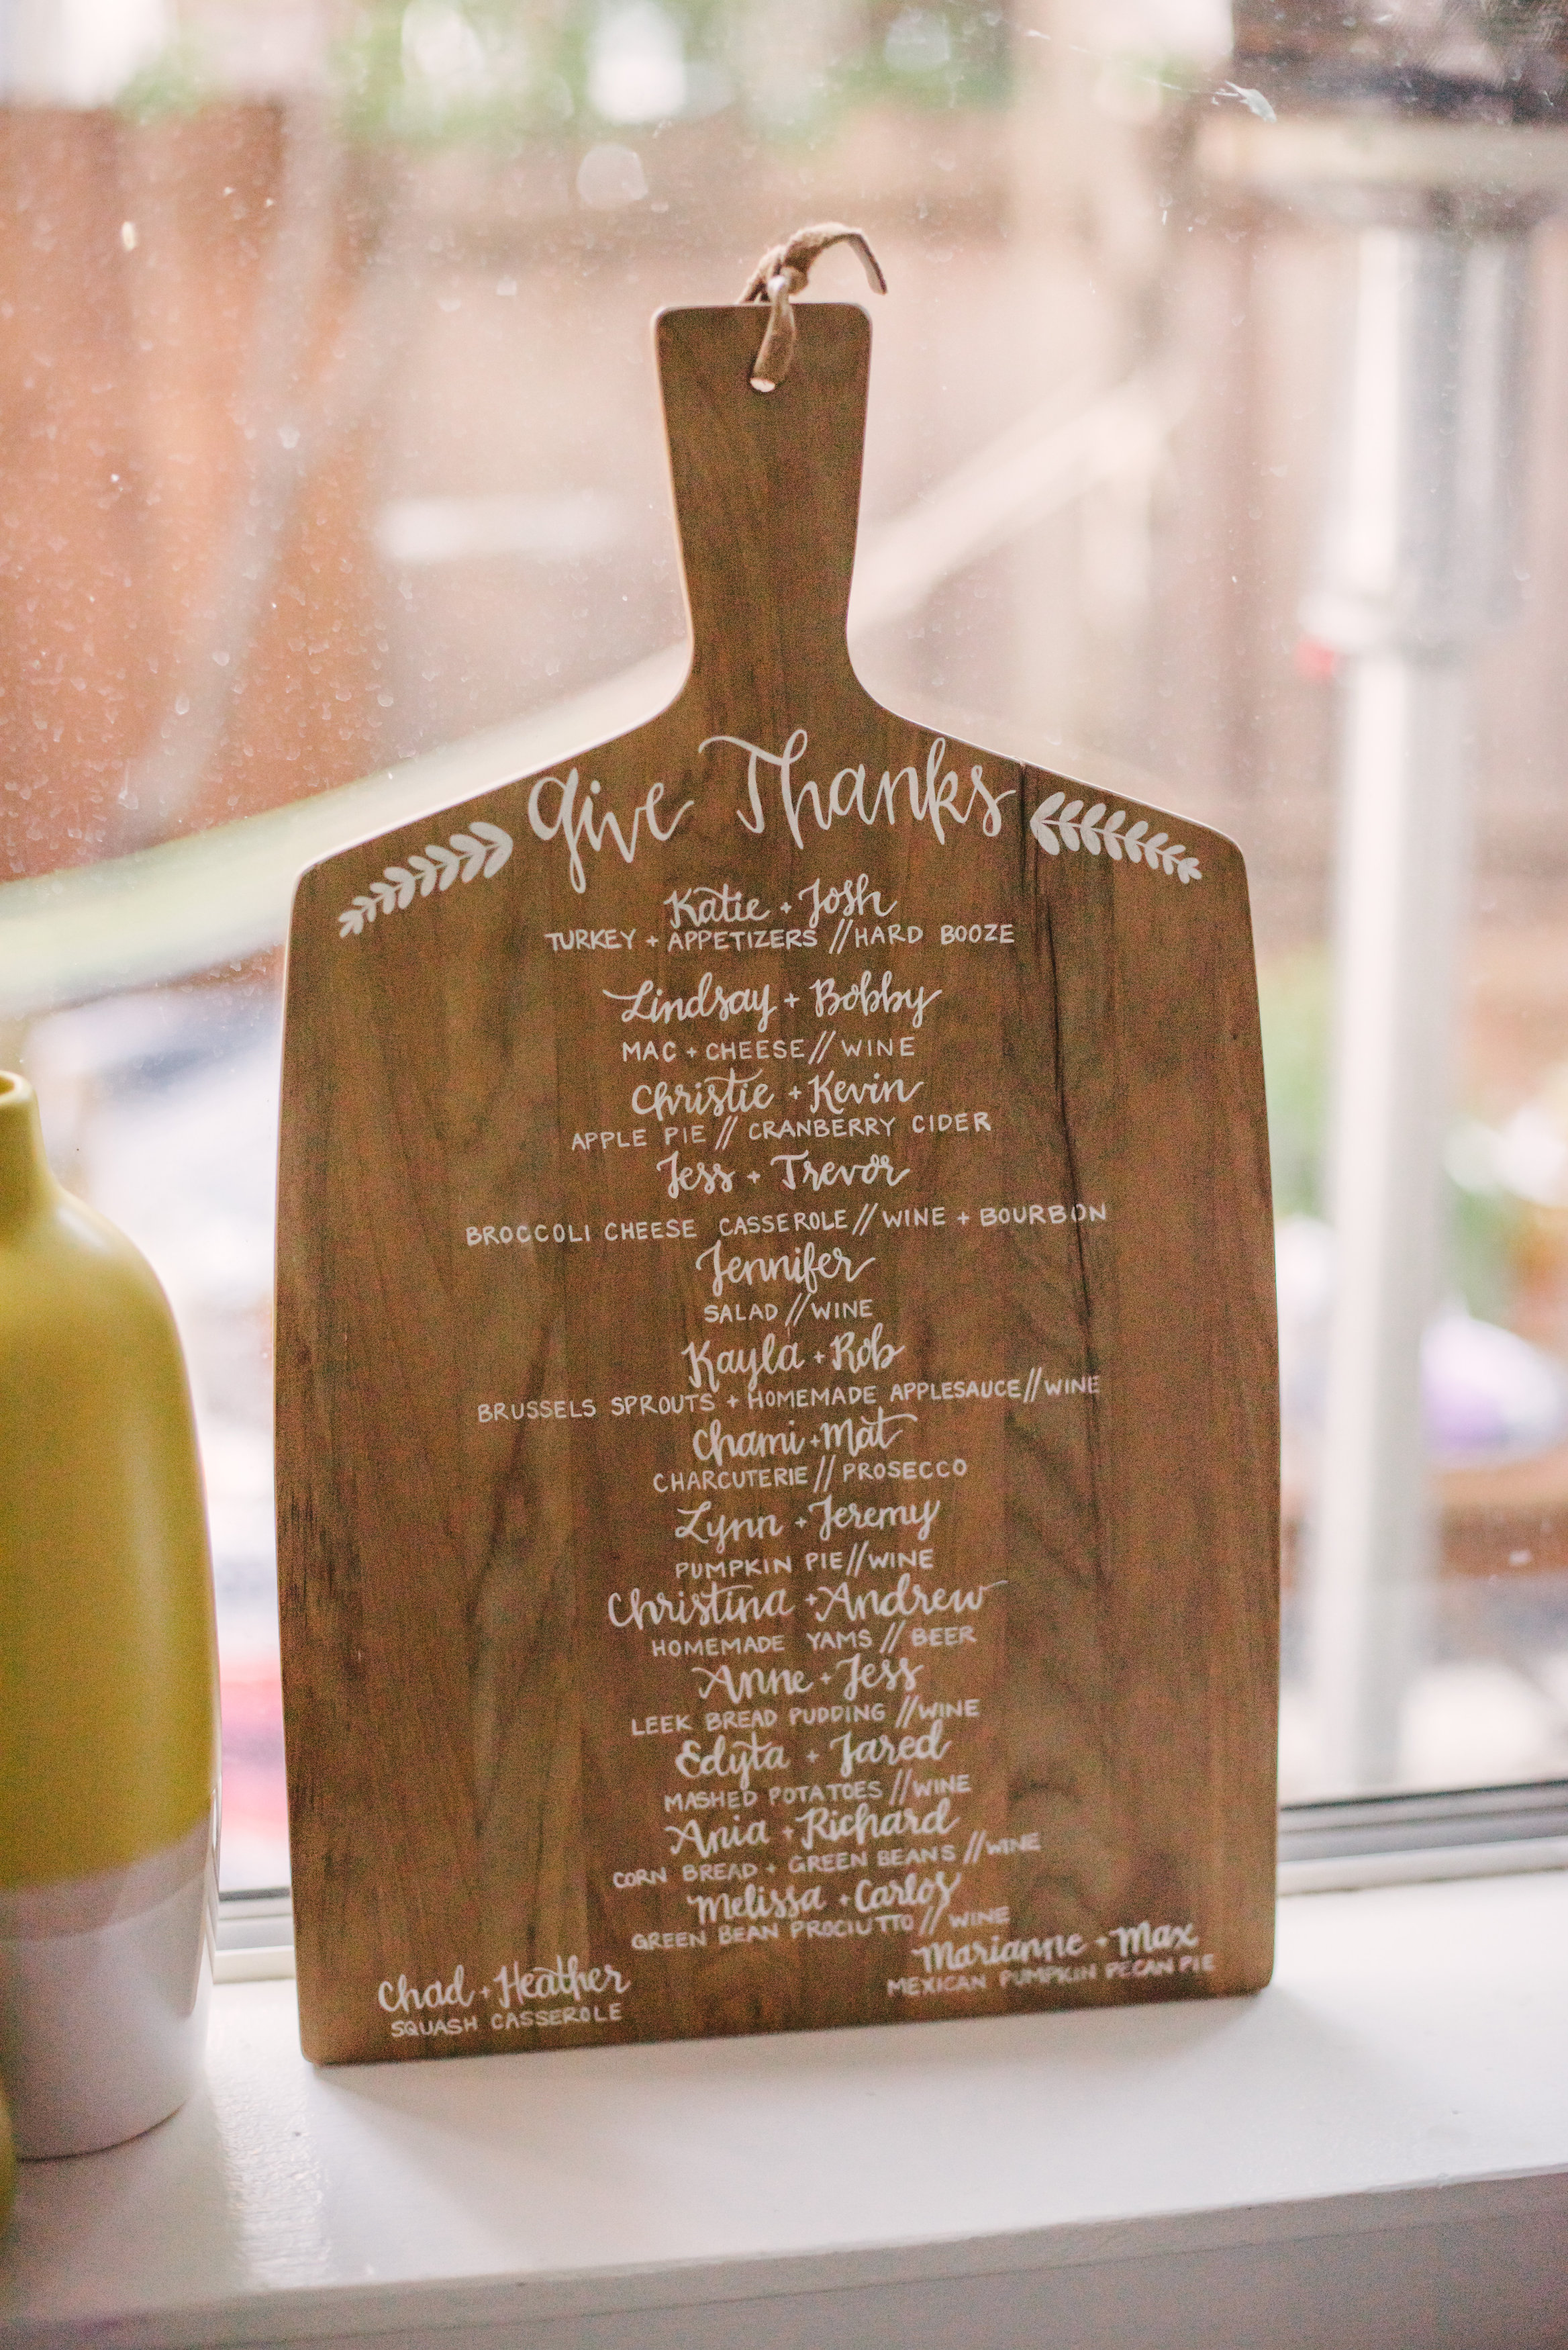 Give Thanks
Katie + Josh
TURKEY + APPETIZERS // HARD BOOZE
Lindsay + Bobby
MAC + CHEESE // WINE
Christie + Kevin
APPLE PIE // CRANBERRY CIDER
Jess + Trevor
BROCCOLI CHEESE CASSEROLE // WINE + BOURBON
Jennifer
SALAD // WINE
Kayla + Rob
BRUSSELS SPROUTS + HOMEMADE APPLESAUCE // WINE
Chami + Mat
CHARCUTERIE // PROSECCO
Lynn + Jeremy
PUMPKIN PIE // WINE
Christina + Andrew
HOMEMADE YAMS // BEER
Anne + Jess
LEEK BREAD PUDDING // WINE
Edyta + Jared
MASHED POTATOES // WINE
Ania + Richard
CORN BREAD + GREEN BEANS // WINE
Melissa + Carlos
GREEN BEAN PROCIUTTO // WINE
Chad + Heather
SQUASH CASSEROLE
Marianne + Max
MEXICAN PUMPKIN PECAN PIE